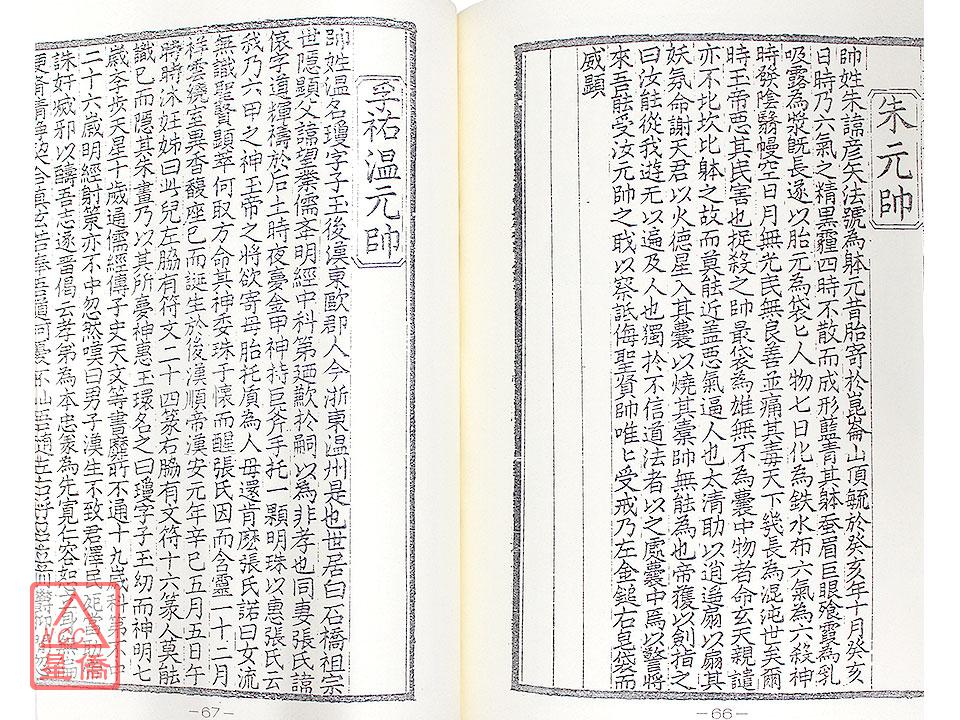 朱元帥
帥姓朱諱彦夫法號為躰元昔胎寄於崑崙山頂毓於癸亥年十月癸亥
日時乃六氣之精黑霾四時不散而成形藍青其躰蚕眉巨眼飱霞為乳
吸露為漿既長遂以胎元為袋匕人物七日化為鉄水布六氣為六殺神
時發陰翳幔空日月無光民無良善並痛其毒天下幾長為混沌世矣爾
時玉帝悪其民害也捉殺之帥最袋為雄無不為囊中物者命玄天親譴
亦不比坎比躰之故而莫能近盖悪氣逼人也太清助以逍遥扇以扇其
妖氛命謝天君以火德星入其囊以燒其橐帥無能為也帝獲以劍指之
曰汝能從我遊无以遍及人也獨扵不信道法者以之處囊中焉以警將
來吾能受汝元帥之職以察詆侮聖賢帥唯匕受戒乃左金鎚右皂袋而
威顯
－66－
孚祐温元帥
帥姓温名瓊字子玉後漢東歐郡人今浙東温州是也世居曰石橋祖宗
世隱顯父諱望業儒斈明經中科第廼歉於嗣以為非孝也同妻張氏諱
倿字道輝禱於后土時夜夢金甲神持巨斧手托一顆明珠以惠張氏云
我乃六甲之神玉帝之將欲寄母胎托質為人母還肯麽張氏諾曰女流
無識聖賢顕萃何取方命其神委珠于懷而醒張氏因而含靈一十二月
祥雲繞室異香馥座已而誕生於後漢順帝漢安元年辛巳五月五日午
時時沐妊姊曰此兒左脇有符文二十四篆右脇有文符十六篆人莫能
識已而隱其朱畫乃以其所夢神惠玉環名之曰瓊字子玉幼而神明七
歳李步天星十歲通儒經傳子史天文等書靡所不通十九歳科第不中
二十六歳明經射策亦不中忽然嘆曰男子漢生不致君澤民死當助
誅奸㓕邪以䜴吾志遂晋偈云孝弟為本忠家為先寛仁容恕
－67－
NCC
星僑